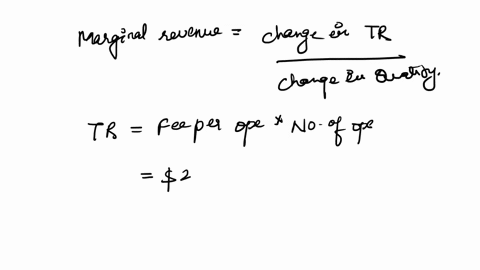 Marginal revenue = change in TR
change in Quantity.
TR = Fee per ope * No. of ope
= $2